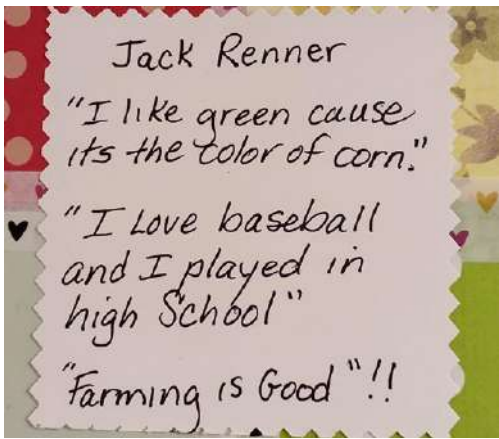 Jack Renner
"I like green cause
its the color of corn."
"I Love baseball
and I played in
high School"
"Farming is Good"!!